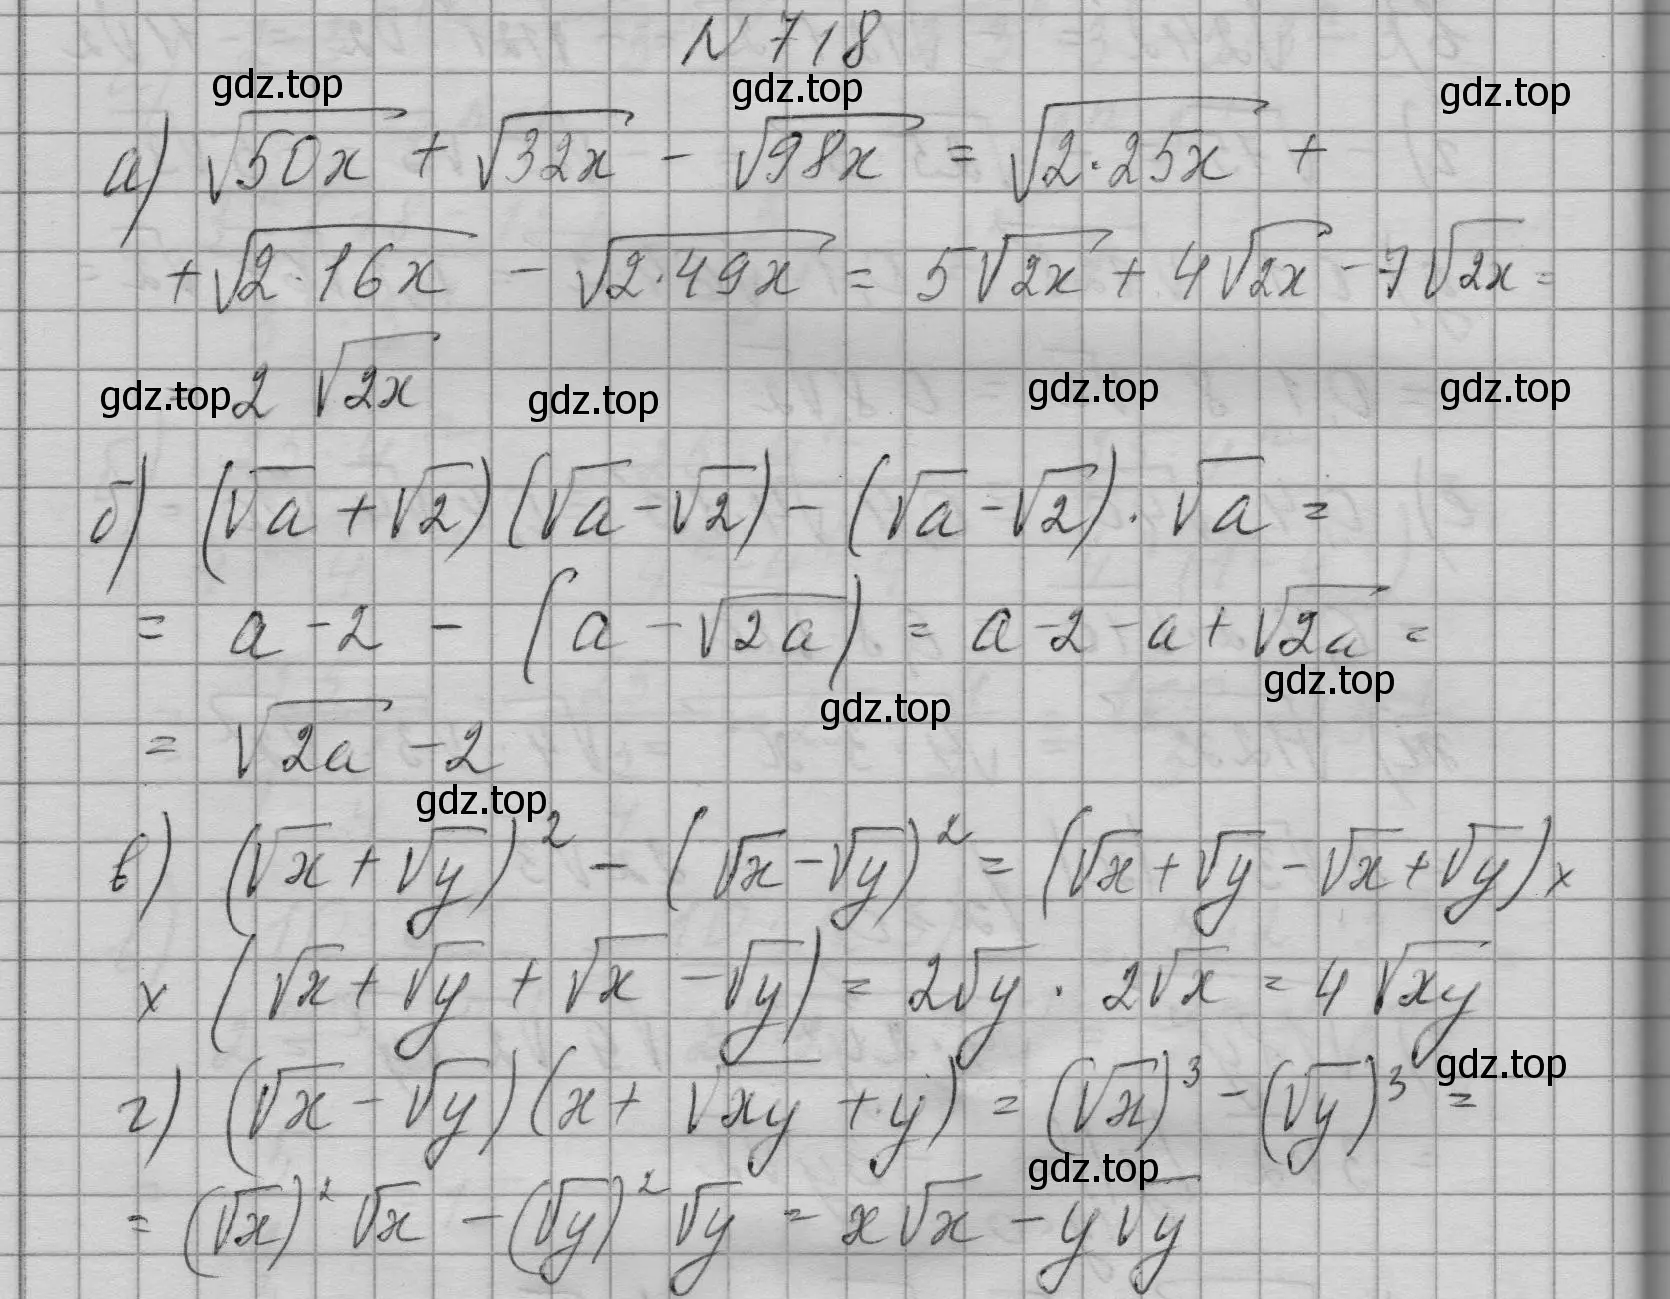 N 718
gdz.top gdz.top gdz.top
а) √50x + √32x - √98x = √2·25x +
+ √2·16x - √2·49x = 5√2x + 4√2x - 7√2x =
= 2 √2x
gdz.top gdz.top gdz.top gdz.top
б) (√a + √2)(√a - √2) - (√a - √2) · √a =
= a - 2 - (a - √2a) = a - 2 - a + √2a =
gdz.top gdz.top
= √2a - 2
gdz.top
в) (√x + √y)² - (√x - √y)² = (√x + √y - √x + √y) ×
× (√x + √y + √x - √y) = 2√y · 2√x = 4√xy
gdz.top
г) (√x - √y)(x + √xy + y) = (√x)³ - (√y)³ =
gdz.top
= (√x)² √x - (√y)² √y = x√x - y√y